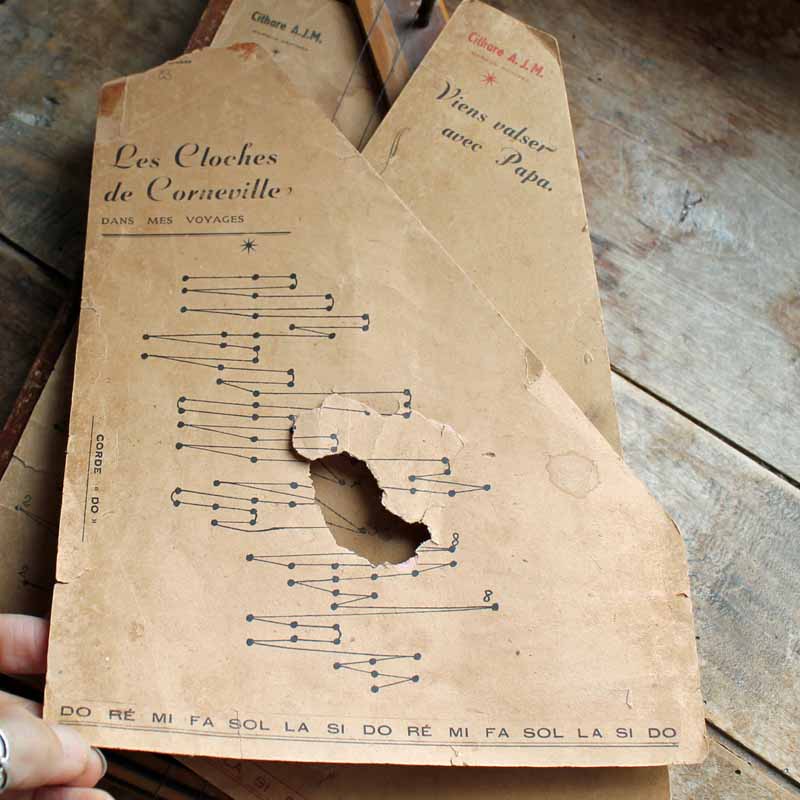 Cithare A.J.M.
Cithare A.J.M.
Viens valser
avec Papa.
Les Cloches
de Corneville
DANS MES VOYAGES
CORDE « DO »
2
2
8
8
DO RÉ MI FA SOL LA SI DO RÉ MI FA SOL LA SI DO
LA SI